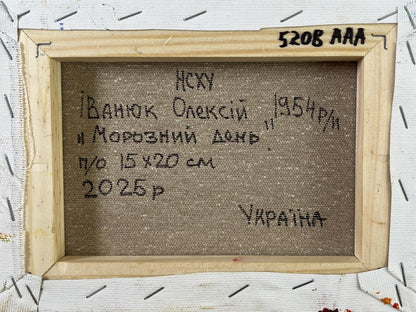 5208 ААА
НСХУ
Іванюк Олексій 1954 р/н
"Морозний день"
п/о 15х20 см
2025р
Україна